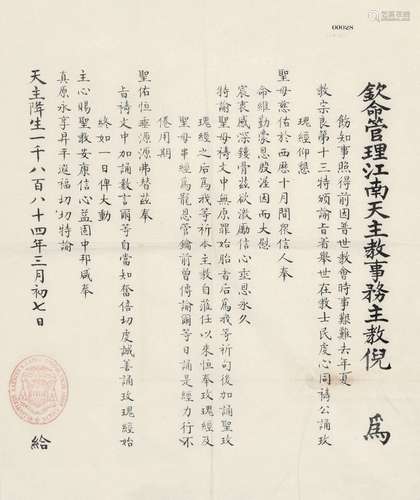 00028
欽命管理江南天主教事務主教倪 為
飭知事照得前因普世教會時事艱難去年夏
教宗良第十三特頒諭旨着舉世在教士民虔心同禱公誦玫
瑰經仰懇
聖母慈佑於西曆十月間眾信人奉
命維勤蒙恩殷渥因而大慰
宸衷感深鏤骨茲欲激勵信心垂恩永久
特諭聖母禱文中無原罪始胎者后為我等祈句後加誦聖玫
瑰經之后為我等祈本主教自蒞任以來恒奉玫瑰經及
聖母串經為寵恩管鑰前曾傳諭爾等日誦是經力行不
倦用期
聖佑恒垂源源弗替茲奉
旨禱文中加誦数言爾等自當知奮倍切虔誠善誦玫瑰經始
終如一日俾大動
主心賜聖教安康信心益固中邦咸奉
真原永享昇平進福切切特諭
天主降生一千八百八十四年三月初七日 給